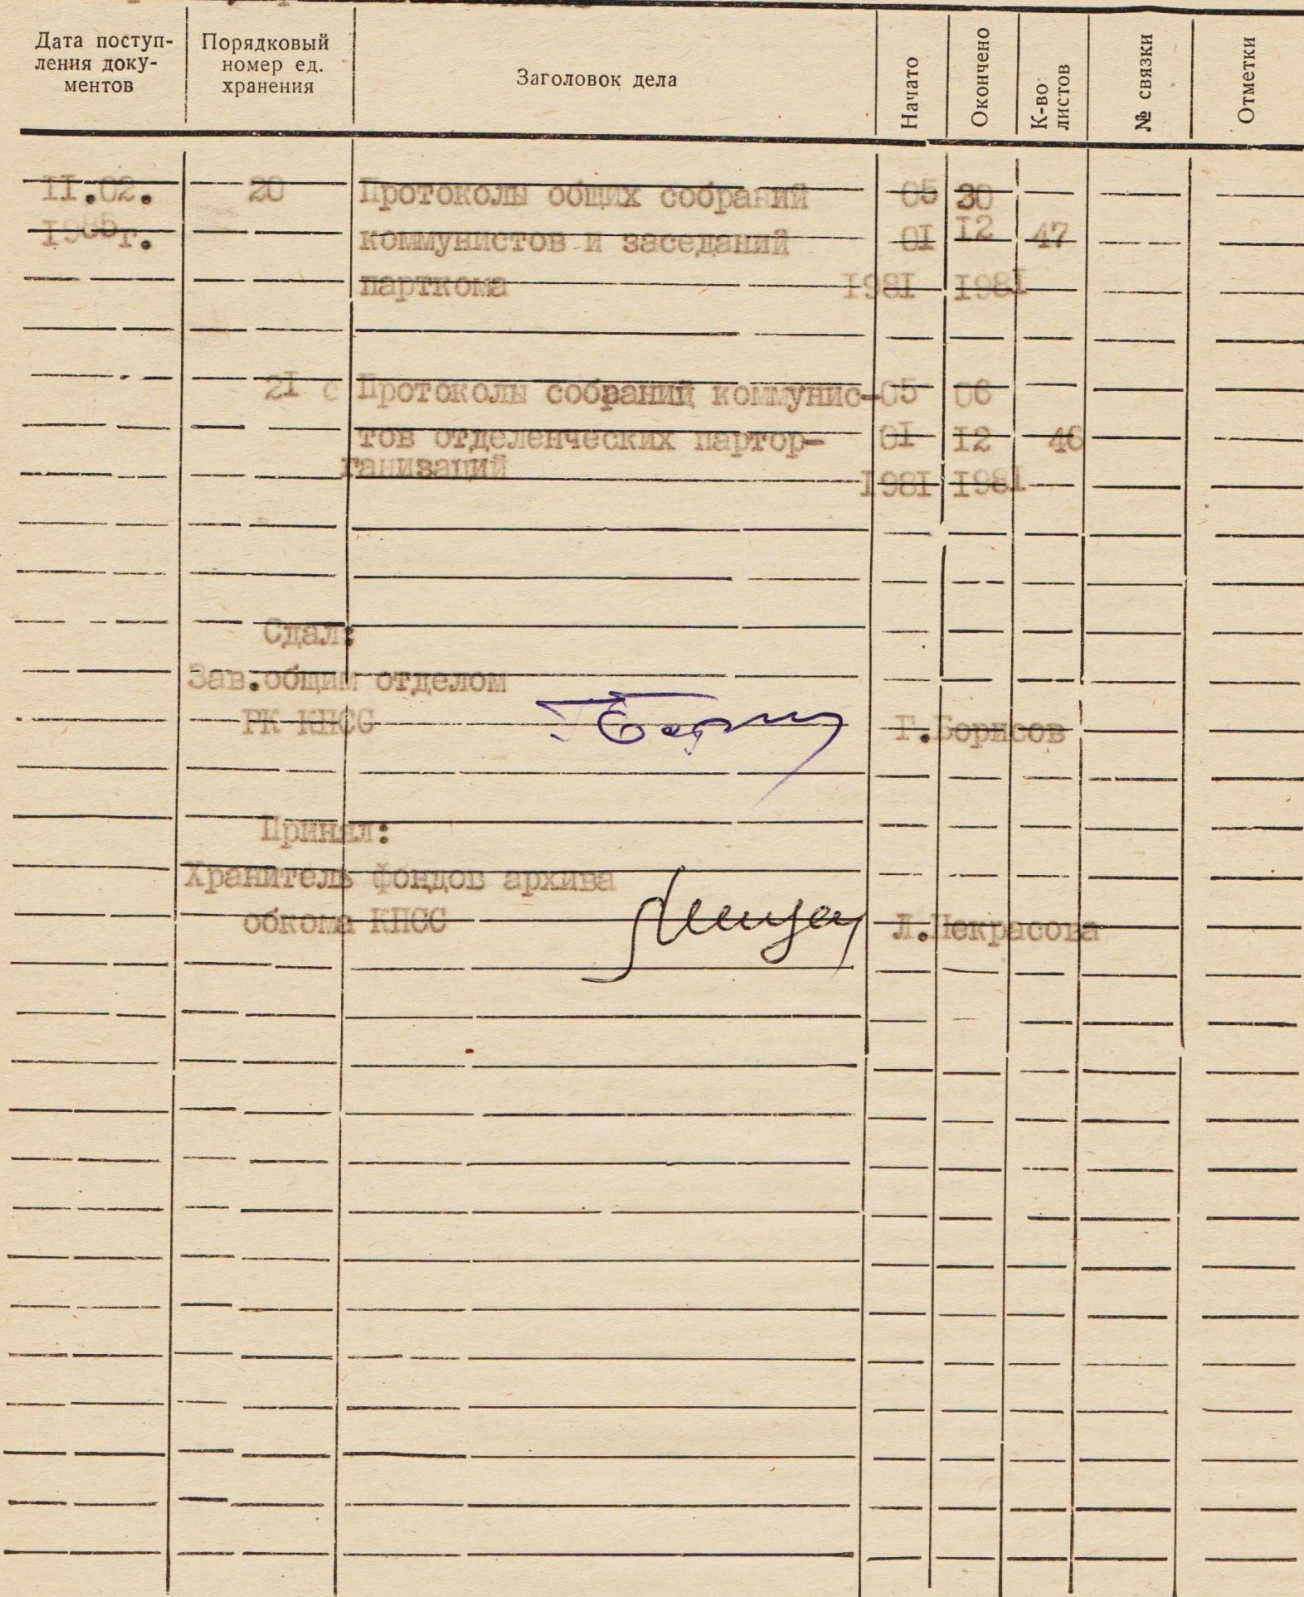 Дата поступ-
ления доку-
ментов
Порядковый
номер ед.
хранения
Заголовок дела
Начато
Окончено
К-во
листов
№ связки
Отметки
II.02. 20 Протоколы общих собраний 05 30
г. коммунистов и заседаний 0I I2 47
парткома I98I I98I
2I с Протоколы собраний коммунис- 05 06
тов отделенческих партор- 0I I2 46
ганизаций
I98I I98I
Сдал:
Зав.общим отделом
РК КПСС Г.Борисов
Принял:
Хранитель фондов архива
обкома КПСС Л.Некрасова